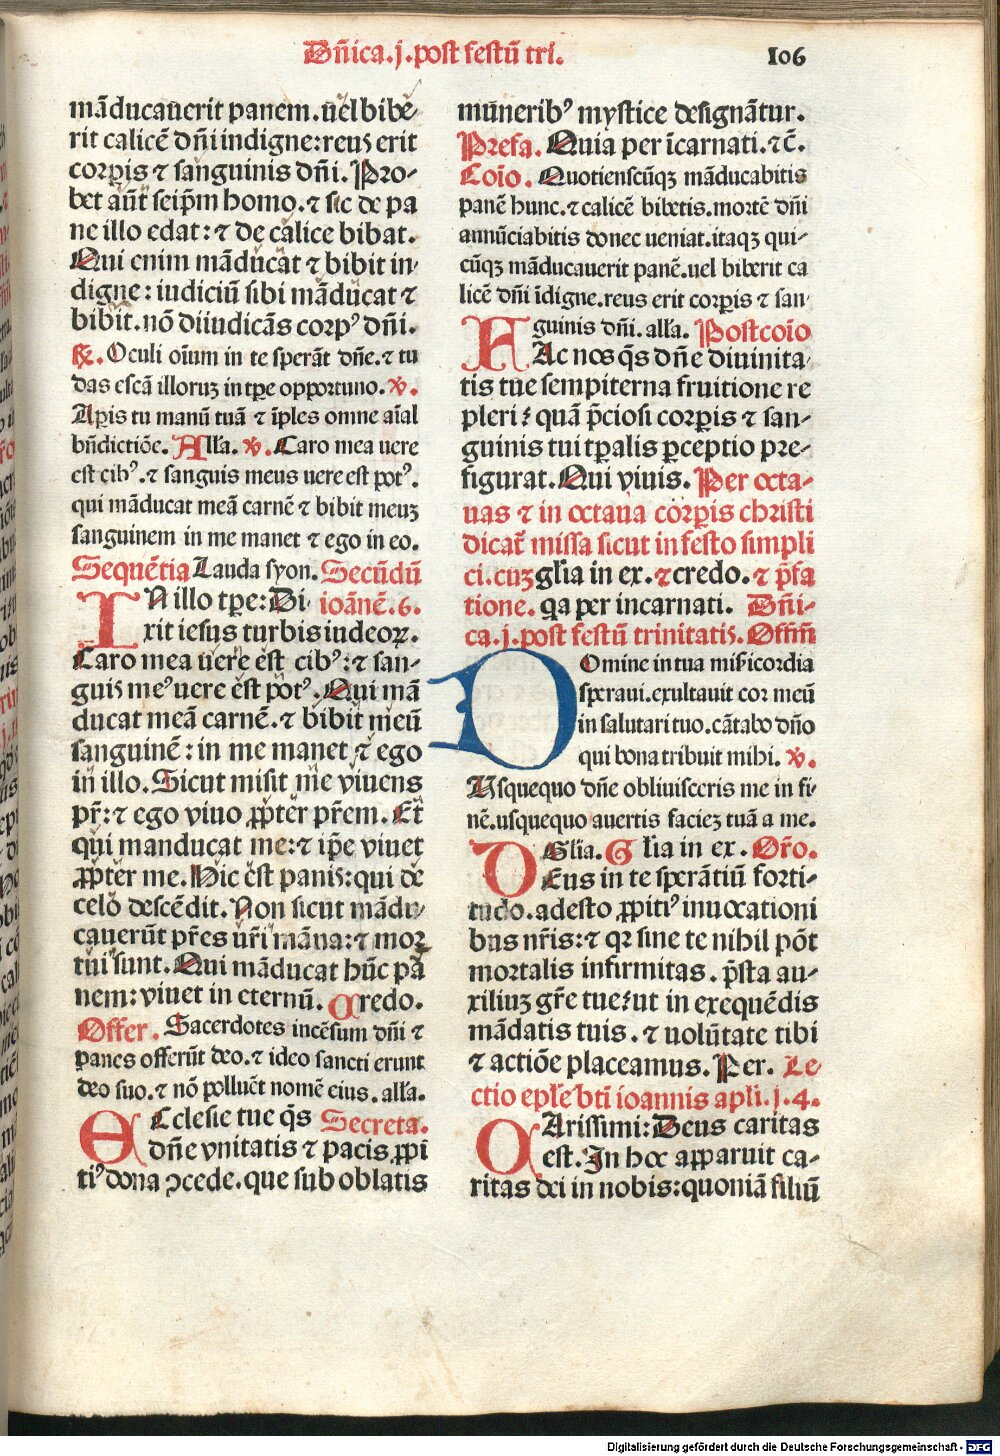 Dñica.j.post festũ tri.
106
mãducauerit panem.uel bibe-
rit calicẽ dñi indigne:reus erit
corpꝭis ⁊ sanguinis dñi.Pro-
bet aũt seip̃m homo.⁊ sic de pa
ne illo edat:⁊ de calice bibat.
Qui enim mãducat ⁊ bibit in-
digne:iudiciũ sibi mãducat ⁊
bibit.nõ diiudicãs corpꝰ dñi.
℟. Oculi oĩum in te sperãt dñe.⁊ tu
das escã illoruꝫ in tp̃e opportuno.℣.
Apis tu manũ tuã ⁊ ĩples omne aĩal
bñdictiõe. Alľa. ℣. Caro mea uere
est cibꝰ.⁊ sanguis meus uere est potꝰ.
qui mãducat meã carnẽ ⁊ bibit meuꝫ
sanguinem in me manet ⁊ ego in eo.
Sequẽtia Lauda syon. Secũdũ
IN illo tp̃e:Di- ioãnẽ.6.
xit iesus turbis iudeoꝝ.
Caro mea uere est cibꝰ:⁊ san-
guis meꝰ uere est potꝰ.Qui mã
ducat meã carnẽ.⁊ bibit meũ
sanguinẽ:in me manet ⁊ ego
in illo.Sicut misit me viuens
pr̃:⁊ ego viuo ꝓpter pr̃em.Et
qui manducat me:⁊ ip̃e viuet
ꝓpter me.Hic est panis:qui de
celo descẽdit.Non sicut mãdu-
cauerũt pr̃es ur̃i mãna:⁊ mor
tui sunt.Qui mãducat hũc pa
nem:viuet in eternũ. Credo.
Offer. Sacerdotes incẽsum dñi ⁊
panes offerũt deo.⁊ ideo sancti erunt
deo suo.⁊ nõ polluẽt nomẽ eius.alľa.
ECclesie tue q̃s Secreta.
dñe vnitatis ⁊ pacis ꝓpi
tiꝰ dona ꝯcede.que sub oblatis
muneribꝰ mystice designãtur.
Prefa. Quia per ĩcarnati.⁊c̃.
Coĩo. Quotienscũqꝫ mãducabitis
panẽ hunc.⁊ calicẽ bibetis.mortẽ dñi
annũciabitis donec ueniat.itaqꝫ qui-
cũqꝫ mãducauerit panẽ.uel biberit ca
licẽ dñi ĩdigne.reus erit corpꝭis ⁊ san-
guinis dñi.alľa. Postcoĩo
FAc nos q̃s dñe diuinita-
tis tue sempiterna fruitione re
pleri:quã p̃ciosi corpꝭis ⁊ san-
guinis tui tp̃alis ꝑceptio pre-
figurat.Qui viuis.Per octa-
uas ⁊ in octaua corpꝭis christi
dicat̃ missa sicut in festo simpli
ci.cuꝫ gľia in ex.⁊ credo.⁊ p̃fa
tione. qa per incarnati. Dñi-
ca.j.post festũ trinitatis.Offm̃
DOmine in tua mis̃icordia
speraui.exultauit cor meũ
in salutari tuo.cãtabo dño
qui bona tribuit mihi. ℣.
Usquequo dñe obliuisceris me in fi-
nẽ.usquequo auertis facieꝫ tuã a me.
Gľia.Gľia in ex.Or̃o.
DEus in te sperãtiũ forti-
tudo.adesto ꝓpitiꝰ inuocationi
bus nr̃is:⁊ qꝛ sine te nihil põt
mortalis infirmitas.p̃sta au-
xiliuꝫ gr̃e tue:ut in exequẽdis
mãdatis tuis.⁊ uolũtate tibi
⁊ actiõe placeamus.Per. Le
ctio epľe bt̃i ioannis apli.j.4.
CArissimi:Deus caritas
est.In hoc apparuit ca-
ritas dei in nobis:quoniã filiũ
Digitalisierung gefördert durch die Deutsche Forschungsgemeinschaft - DFG